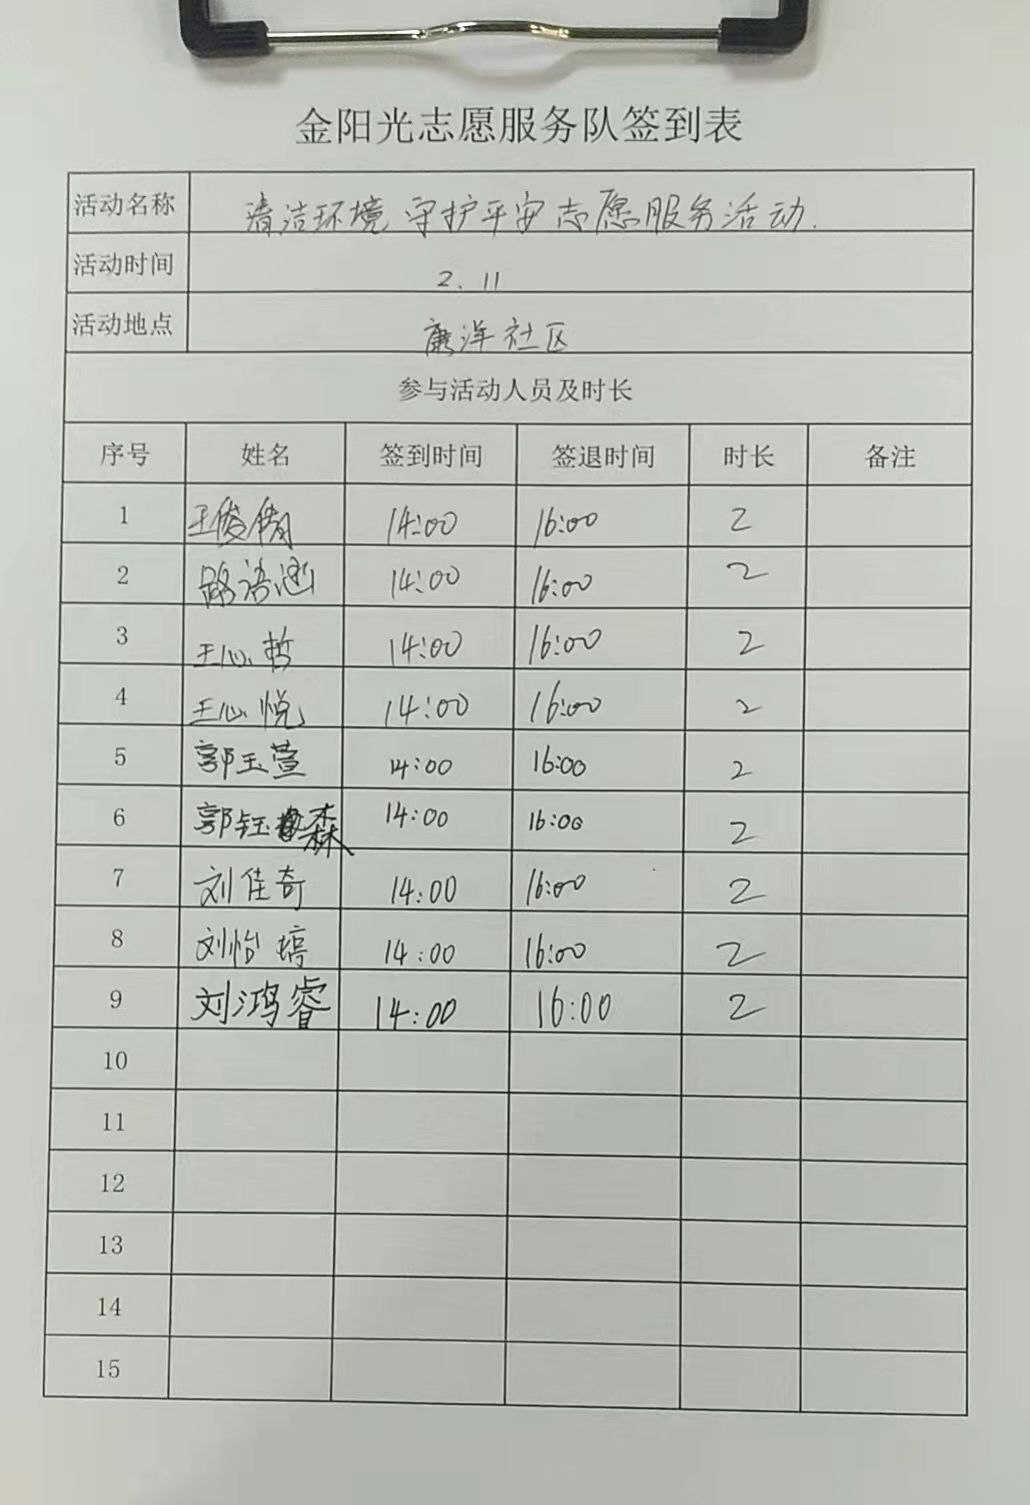 金阳光志愿服务队签到表
活动名称 清洁环境 守护平安 志愿服务活动.
活动时间 2.11
活动地点 康洋社区
参与活动人员及时长
序号 姓名 签到时间 签退时间 时长 备注
1 王俊倩 14:00 16:00 2
2 路语涵 14:00 16:00 2
3 王心哲 14:00 16:00 2
4 王心悦 14:00 16:00 2
5 郭玉萱 14:00 16:00 2
6 郭钰森 14:00 16:00 2
7 刘佳奇 14:00 16:00 2
8 刘怡婷 14:00 16:00 2
9 刘鸿睿 14:00 16:00 2
10
11
12
13
14
15